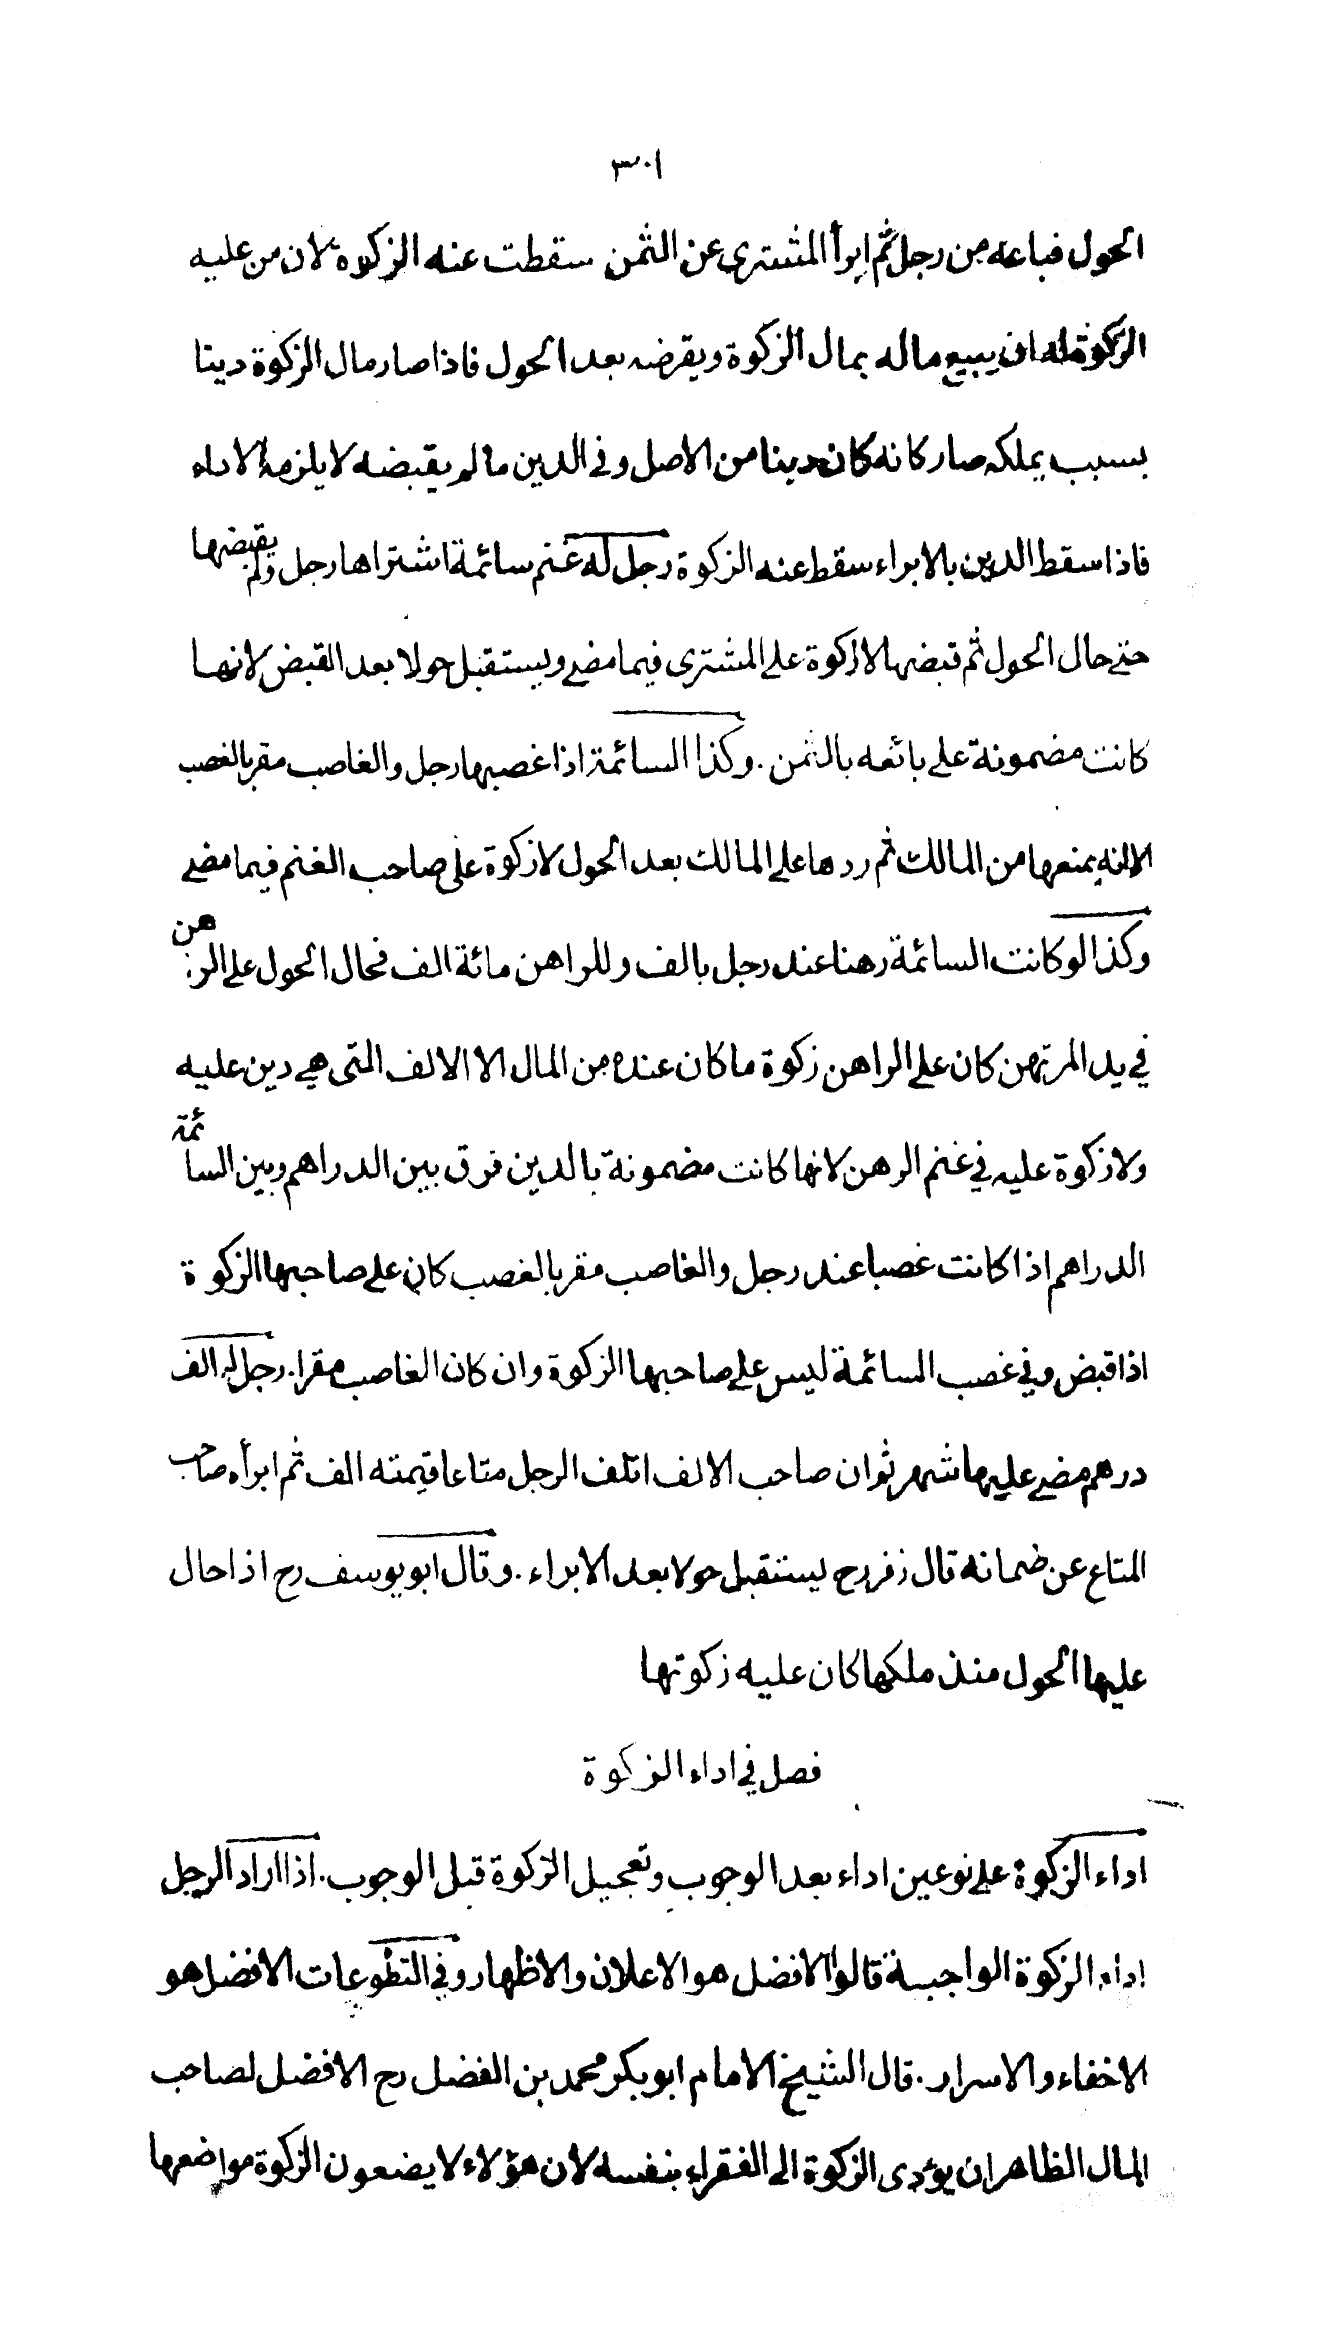 ٣٠١
الحول فباعه من رجل ثم ابرأ المشترى عن الثمن سقطت عنه الزكوة لان من عليه
الزكوة له ان يبيع ماله بمال الزكوة ويقرضه بعد الحول فاذا صار مال الزكوة دينا
بسبب يملكه صار كانه كان دينا من الاصل وفى الدين ما لم يقبضه لا يلزمه الاداء
فاذا سقط الدين بالابراء سقط عنه الزكوة رجل له غنم سائمة اشتراها رجل ولم يقبضها
حتى حال الحول ثم قبضها لا زكوة على المشترى فيما مضى ويستقبل حولا بعد القبض لانها
كانت مضمونة على بائعه بالثمن . وكذا السائمة اذا غصبها رجل والغاصب مقر بالغصب
الا انه يمنعها من المالك ثم ردها على المالك بعد الحول لا زكوة على صاحب الغنم فيما مضى
وكذا لو كانت السائمة رهنا عند رجل بالف وللراهن مائة الف فحال الحول على الرهن
في يد المرتهن كان على الراهن زكوة ما كان عنده من المال الا الالف التى هى دين عليه
ولا زكوة عليه في غنم الرهن لانها كانت مضمونة بالدين فرق بين الدراهم وبين السائمة
الدراهم اذا كانت غصبا عند رجل والغاصب مقر بالغصب كان على صاحبها الزكوة
اذا قبض وفي غصب السائمة ليس على صاحبها الزكوة وان كان الغاصب مقرا . رجل له الف
درهم مضى عليها شهر ثم ان صاحب الالف اتلف الرجل متاعا قيمته الف ثم ابرأه صاحب
المتاع عن ضمانه قال زفر رح يستقبل حولا بعد الابراء . وقال ابو يوسف رح اذا حال
عليها الحول منذ ملكها كان عليه زكوتها
فصل في اداء الزكوة
اداء الزكوة على نوعين اداء بعد الوجوب وتعجيل الزكوة قبل الوجوب . اذا اراد الرجل
اداء الزكوة الواجبة قالوا الافضل هو الاعلان والاظهار وفي التطوعات الافضل هو
الاخفاء والاسرار . قال الشيخ الامام ابو بكر محمد بن الفضل رح الافضل لصاحب
المال الظاهر ان يؤدى الزكوة الى الفقراء بنفسه لان هؤلاء لا يضعون الزكوة مواضعها